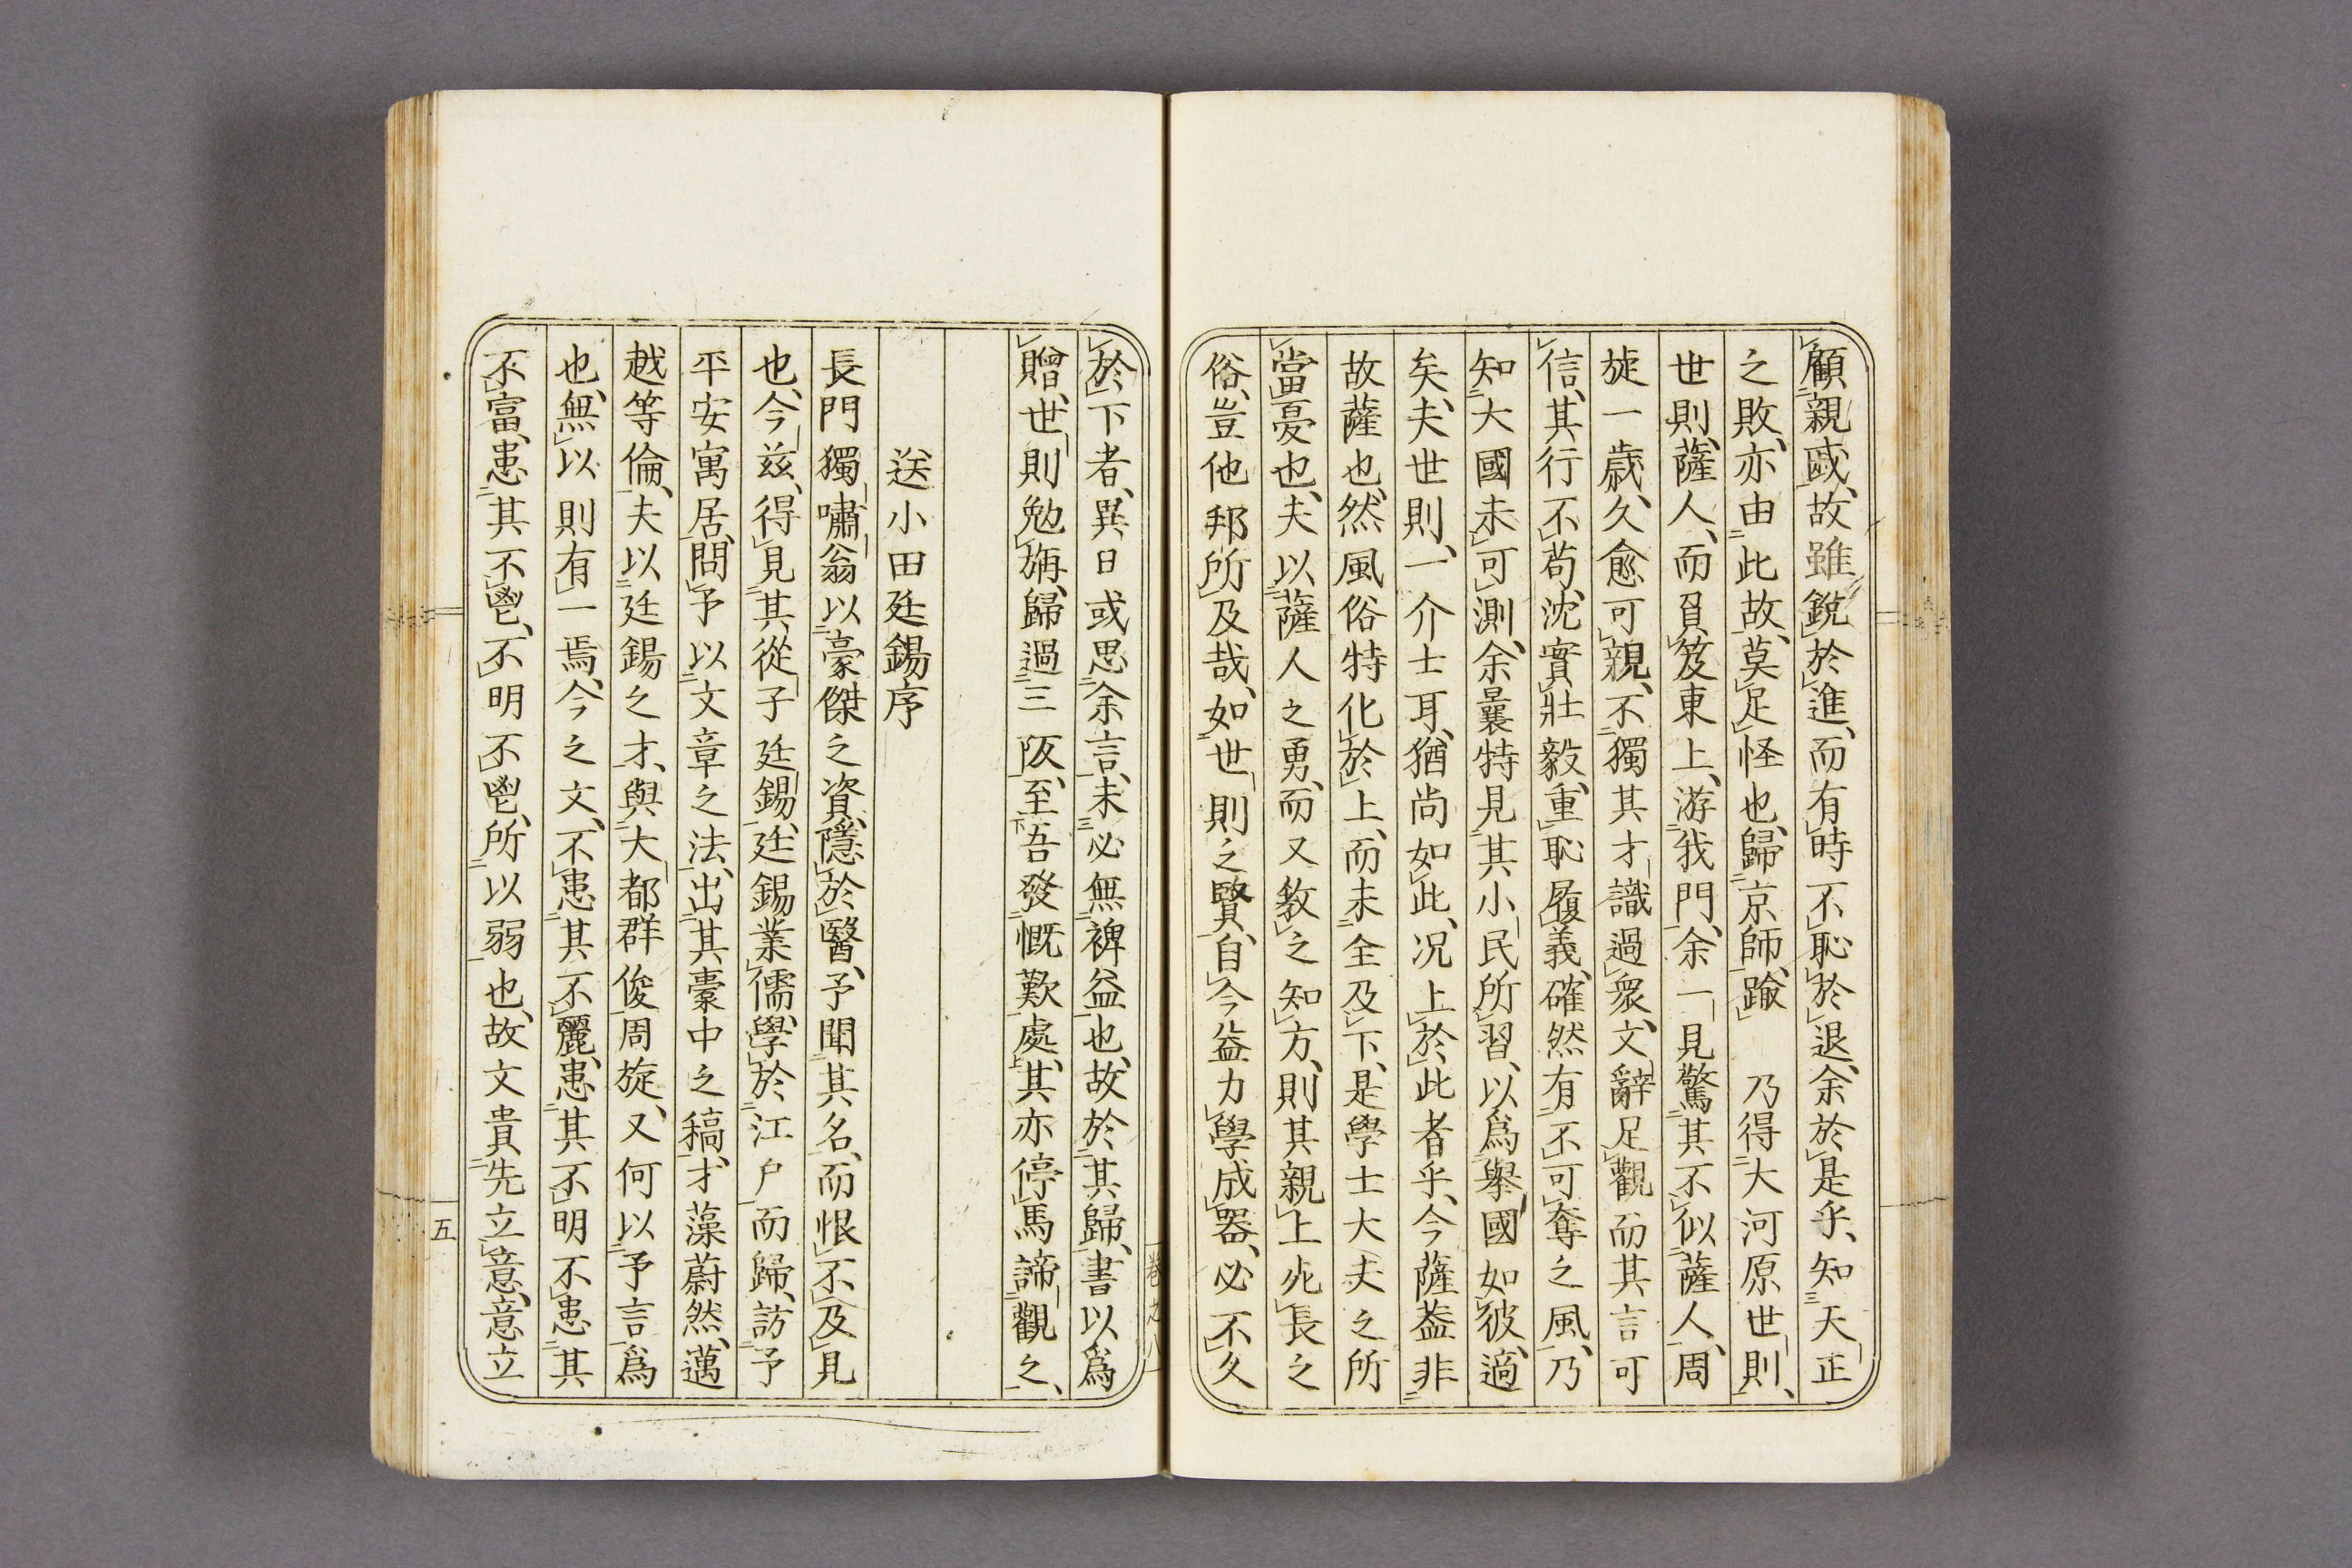 顧親戚、故雖銳於進、而有時不恥於退、余於是乎、知天正
之敗、亦由此故、莫足怪也、歸京師、踰　乃得大河原世則、
世則、薩人、而負笈東上、游我門、余一見驚其不似薩人、周
旋一歲、久愈可親、不獨其才識過衆、文辭足觀而其言可
信、其行不苟、沈實壯毅、重恥履義、確然有不可奪之風、乃
知大國未可測、余曩特見其小民所習、以爲舉國如彼、適
矣、夫世則、一介士耳、猶尚如此、况上於此者乎、今薩蓋非
故薩也、然風俗特化於上、而未全及下、是學士大夫之所
當憂也、夫以薩人之勇、而又教之知方、則其親上死長之
俗、豈他邦所及哉、如世則之賢、自今益力、學成器、必不久
於下者、異日或思余言、未必無裨益也、故於其歸、書以爲
贈、世則勉旃、歸過三阪、至吾發慨歎處、其亦停馬諦觀之、
送小田廷錫序
長門獨嘯翁以豪傑之資、隱於醫、予聞其名、而恨不及見
也、今茲、得見其從子廷錫、廷錫業儒、學於江戶而歸、訪予
平安寓居、問予以文章之法、出其橐中之稿、才藻蔚然、邁
越等倫、夫以廷錫之才、與大都群俊周旋、又何以予言爲
也、無以則有一焉、今之文、不患其不麗、患其不明不患其
不富、患其不鬯、不明不鬯、所以弱也、故文貴先立意、意立
卷之八
五